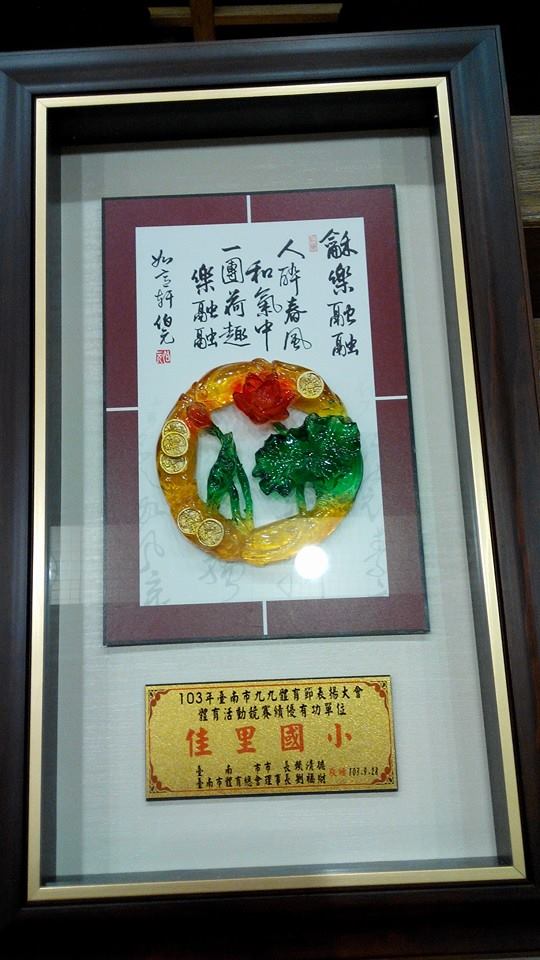 龢樂融融
人醉春風
和氣中
一團荷趣
樂融融
如意軒 伯元
103年臺南市九九體育節表揚大會
體育活動競賽績優有功單位
佳里國小
臺南市市長賴清德
臺南市體育總會理事長劉福財
敬贈 103.9.28